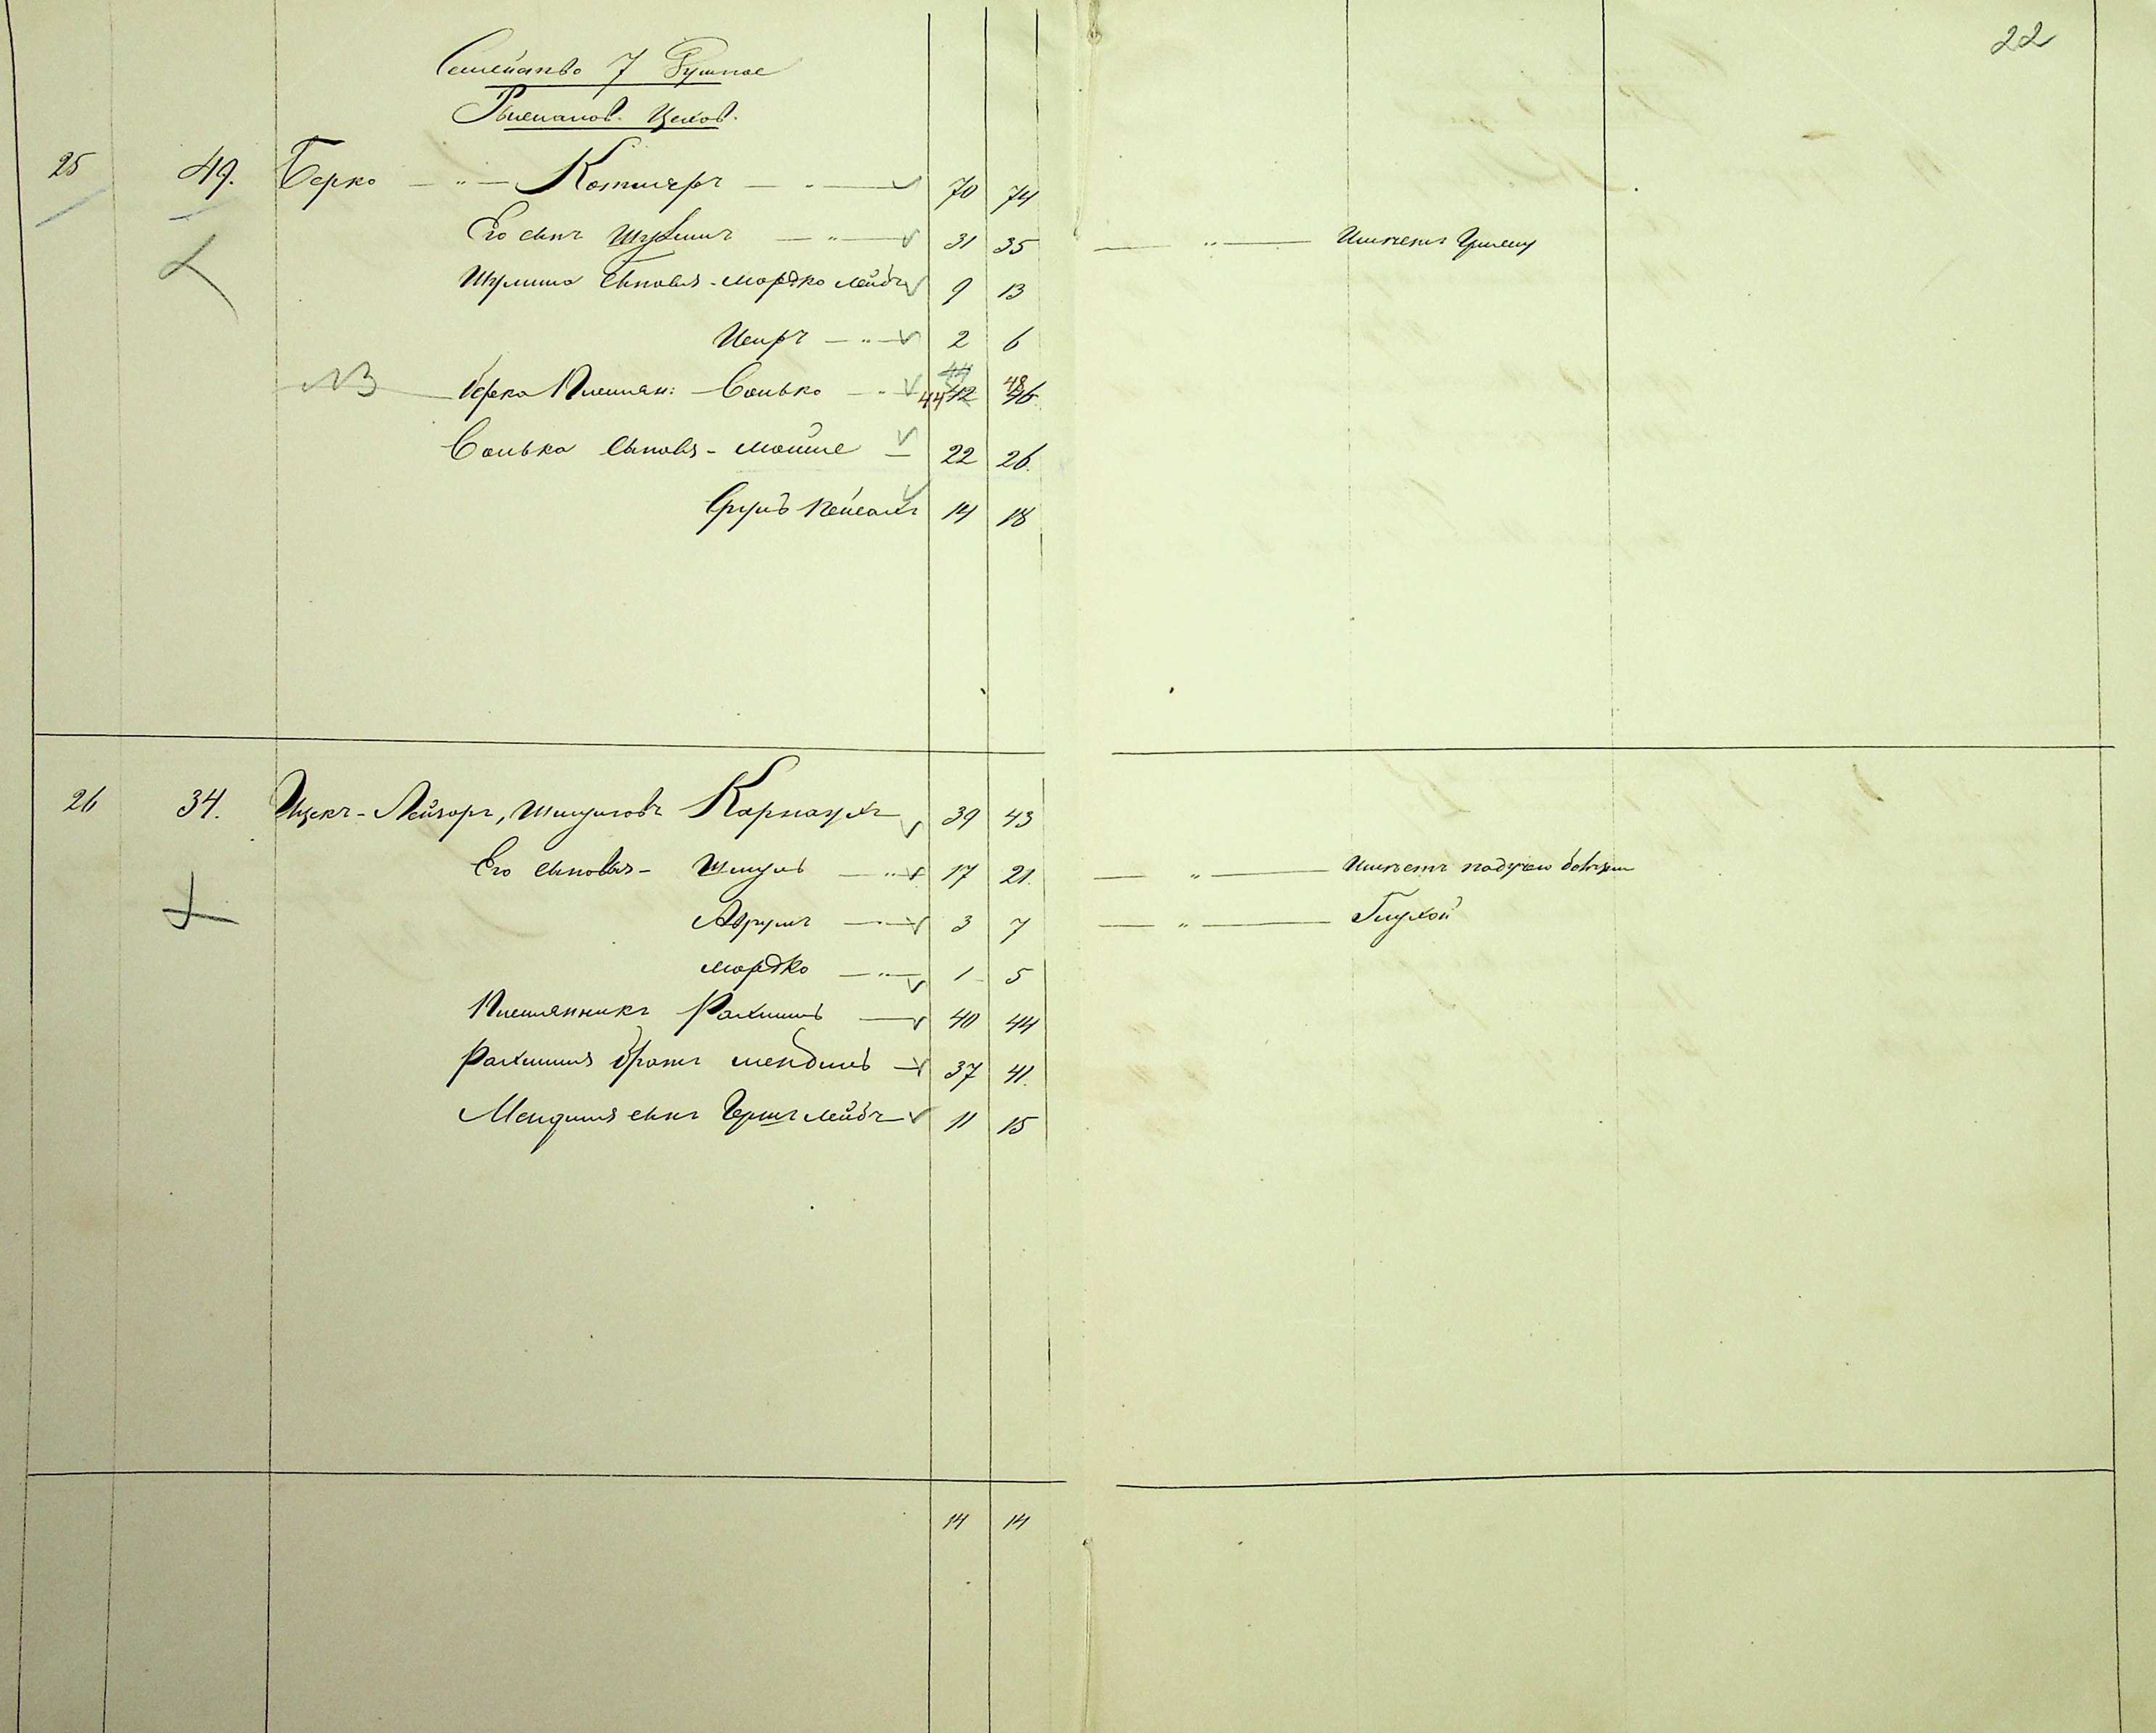 22
Семейство 7 Душное
Цехов.
25 49. Берко — " — Котляръ — " — 70 74
Его сынъ Шулимъ — " — 31 35 — " — Имѣетъ
Шулима сыновья - Мордко Лейбъ 9 13
2 6
NB Берка Племян: - — " 44 42 48 46
сыновья - Мошке — 22 26.
Сруль 14 18
26 34. Ицекъ-Лейзоръ, Шмулевъ Карнаухъ 39 43
Его сыновья - Шмуль — " — 17 21. — " — Имѣетъ падучую болѣзнь
Аврумъ — " — 3 7 — " — Глухой
Мордко — " — 1 5
Племянникъ Рахмиль — 40 44
Рахмиля братъ Мендель — 37 41.
Менделя сынъ Гершъ Лейбъ 11 15
14 14